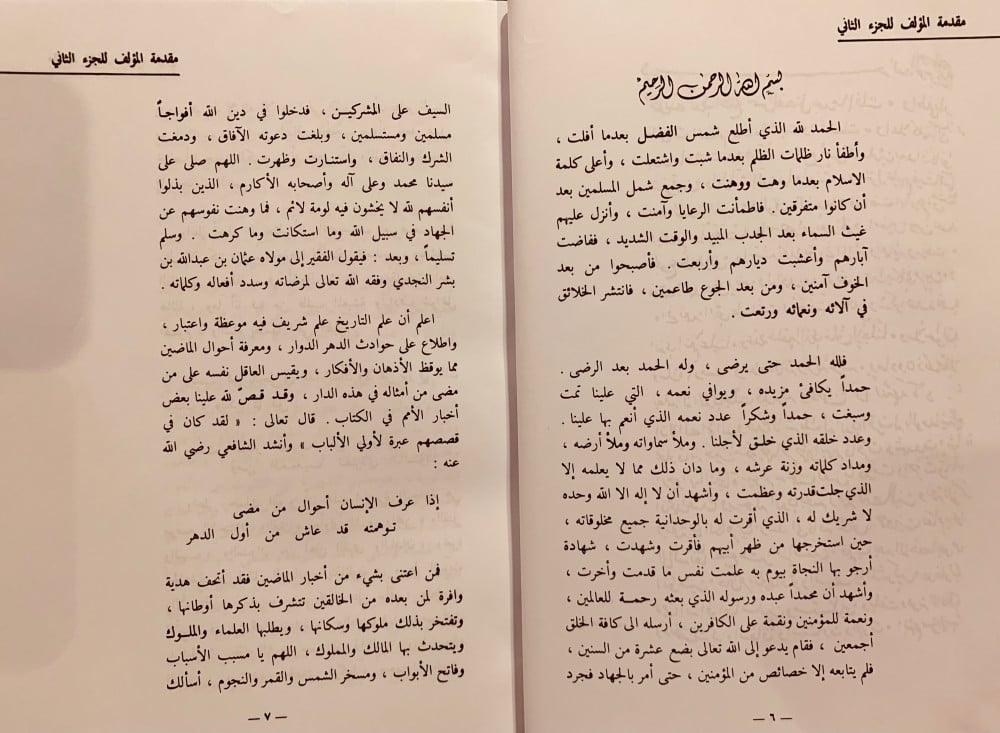 مقدمة المؤلف للجزء الثاني
بسم الله الرحمن الرحيم
الحمد لله الذي أطلع شمس الفضل بعدما أفلت ،
وأطفأ نار ظلمات الظلم بعدما شبت واشتعلت ، وأعلى كلمة
الاسلام بعدما وهت ووهنت ، وجمع شمل المسلمين بعد
أن كانوا متفرقين . فاطمأنت الرعايا وآمنت ، وأنزل عليهم
غيث السماء بعد الجدب المبيد والوقت الشديد ، ففاضت
آبارهم وأعشبت ديارهم وأربعت . فأصبحوا من بعد
الخوف آمنين ، ومن بعد الجوع طاعمين ، فانتشر الخلائق
في آلائه ونعمائه ورتعت .
فلله الحمد حتى يرضى ، وله الحمد بعد الرضى .
حمداً يكافئ مزيده ، ويوافي نعمه ، التي علينا تمت
وسبغت ، حمداً وشكراً عدد نعمه الذي أنعم بها علينا .
وعدد خلقه الذي خلق لأجلنا . وملأ سماواته وملأ أرضه ،
ومداد كلماته وزنة عرشه ، وما دان ذلك مما لا يعلمه إلا
الذي جلت قدرته وعظمت ، وأشهد أن لا إله الا الله وحده
لا شريك له ، الذي أقرت له بالوحدانية جميع مخلوقاته ،
حين استخرجها من ظهر أبيهم فأقرت وشهدت ، شهادة
أرجو بها النجاة بيوم به علمت نفس ما قدمت وأخرت ،
وأشهد أن محمداً عبده ورسوله الذي بعثه رحمة للعالمين ،
ونعمة للمؤمنين ونقمة على الكافرين ، أرسله الى كافة الخلق
أجمعين ، فقام يدعو إلى الله تعالى بضع عشرة من السنين ،
فلم يتابعه إلا خصائص من المؤمنين ، حتى أمر بالجهاد فجرد
— ٦ —
مقدمة المؤلف للجزء الثاني
السيف على المشركين ، فدخلوا في دين الله أفواجاً
مسلمين ومستسلمين ، وبلغت دعوته الآفاق ، ودمغت
الشرك والنفاق ، واستنارت وظهرت . اللهم صلى على
سيدنا محمد وعلى آله وأصحابه الأكارم ، الذين بذلوا
أنفسهم لله لا يخشون فيه لومة لائم ، فما وهنت نفوسهم عن
الجهاد في سبيل الله وما استكانت وما كرهت . وسلم
تسليماً ، وبعد : فيقول الفقير إلى مولاه عثمان بن عبدالله بن
بشر النجدي وفقه الله تعالى لمرضاته وسدد أفعاله وكلماته .
اعلم أن علم التاريخ علم شريف فيه موعظة واعتبار ،
واطلاع على حوادث الدهر الدوار ، ومعرفة أحوال الماضين
مما يوقظ الأذهان والأفكار ، ويقيس العاقل نفسه على من
مضى من أمثاله في هذه الدار ، وقد قصّ لله علينا بعض
أخبار الأمم في الكتاب . قال تعالى : « لقد كان في
قصصهم عبرة لأولي الألباب » وأنشد الشافعي رضي الله
عنه :
إذا عرف الإنسان أحوال من مضى
توهمته قد عاش من أول الدهر
فمن اعتنى بشيء من أخبار الماضين فقد أتحف هدية
وافرة لمن بعده من الخالفين تتشرف بذكرها أوطانها ،
وتفتخر بذلك ملوكها وسكانها ، ويطلبها العلماء والملوك
ويتحدث بها المالك والمملوك ، اللهم يا مسبب الأسباب
وفاتح الأبواب ، ومسخر الشمس والقمر والنجوم ، أسألك
— ٧ —